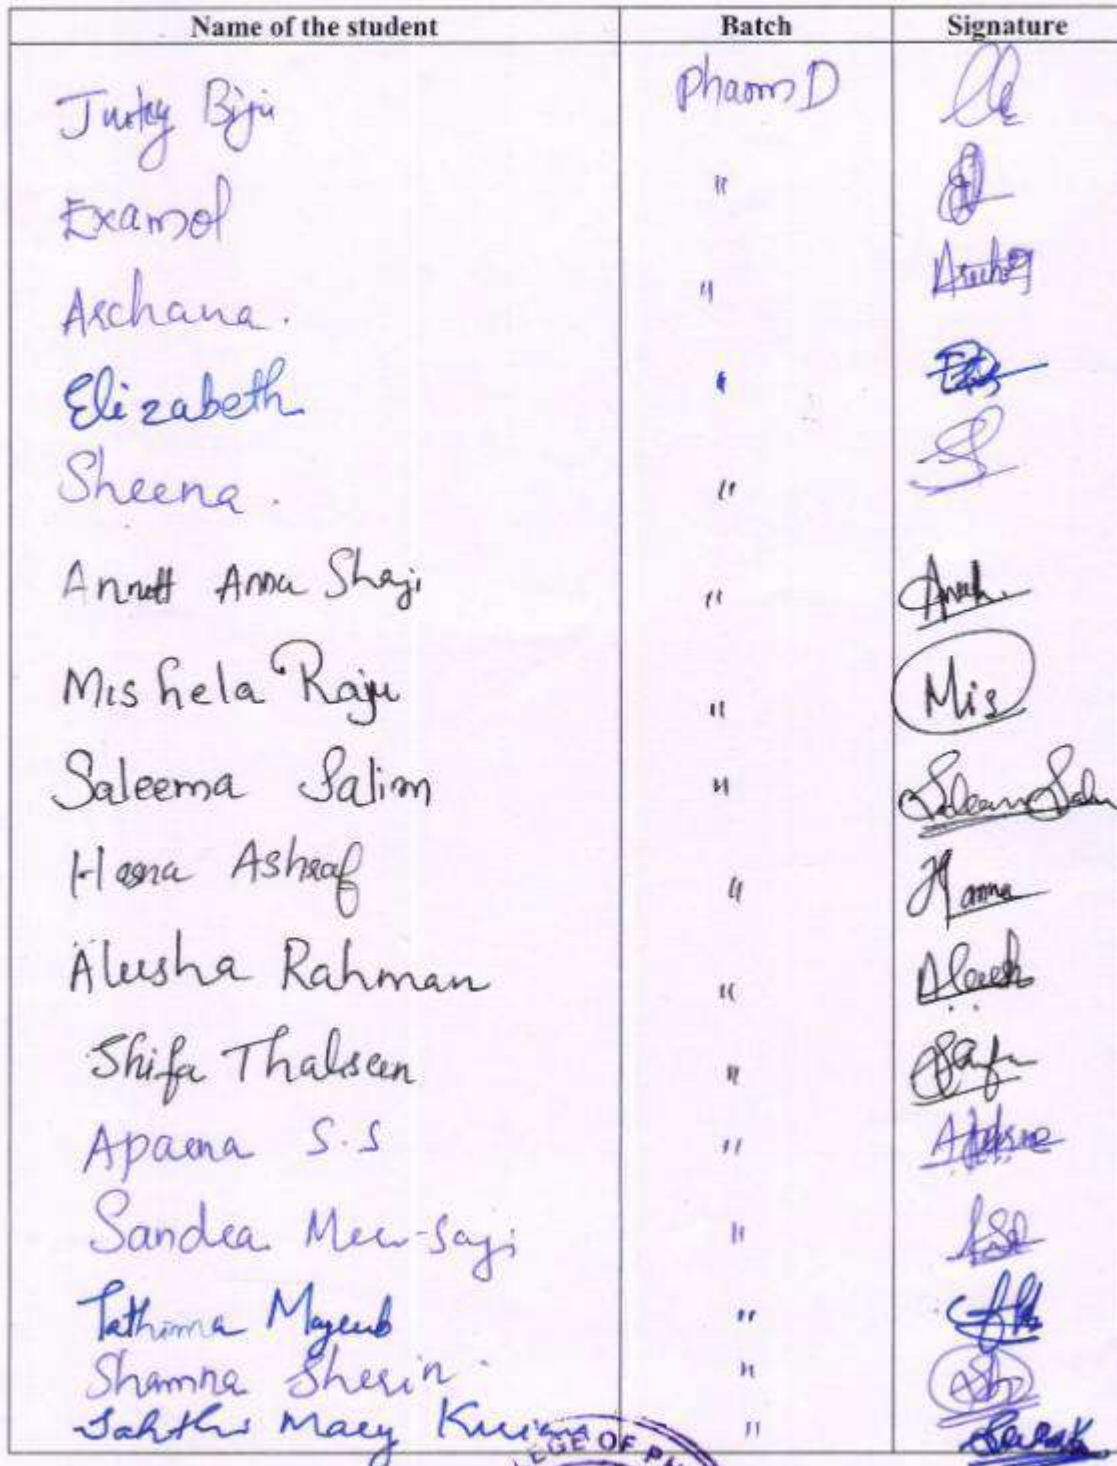 Name of the student Batch Signature
Biju Pharm D
Examol "
Archana. " Archa
Elizabeth "
Sheena. "
Annett Anna Shaji "
Mishela Raju " Mis
Saleema Salim " Saleem Salim
Hasna Ashraf "
Aleesha Rahman "
Shifa Thalseen "
Aparna S.S "
Sandra Saji "
Fathima Majeeb "
Shamna Sherin "
Mary "
EGE OF PH